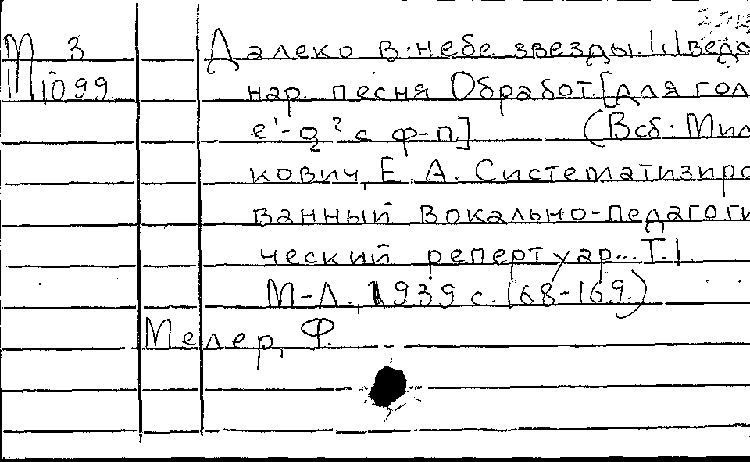 М 3 Далеко в небе звезды. Шведс
1099 нар. песня Обработ. [для гол
e¹-g² с ф-п.] (В сб: Мил
кович, Е. А. Систематизиро
ванный вокально-педагоги
ческий репертуар... Т. I
М-Л., 1939 с. 168-169)
Мелер, Ф.